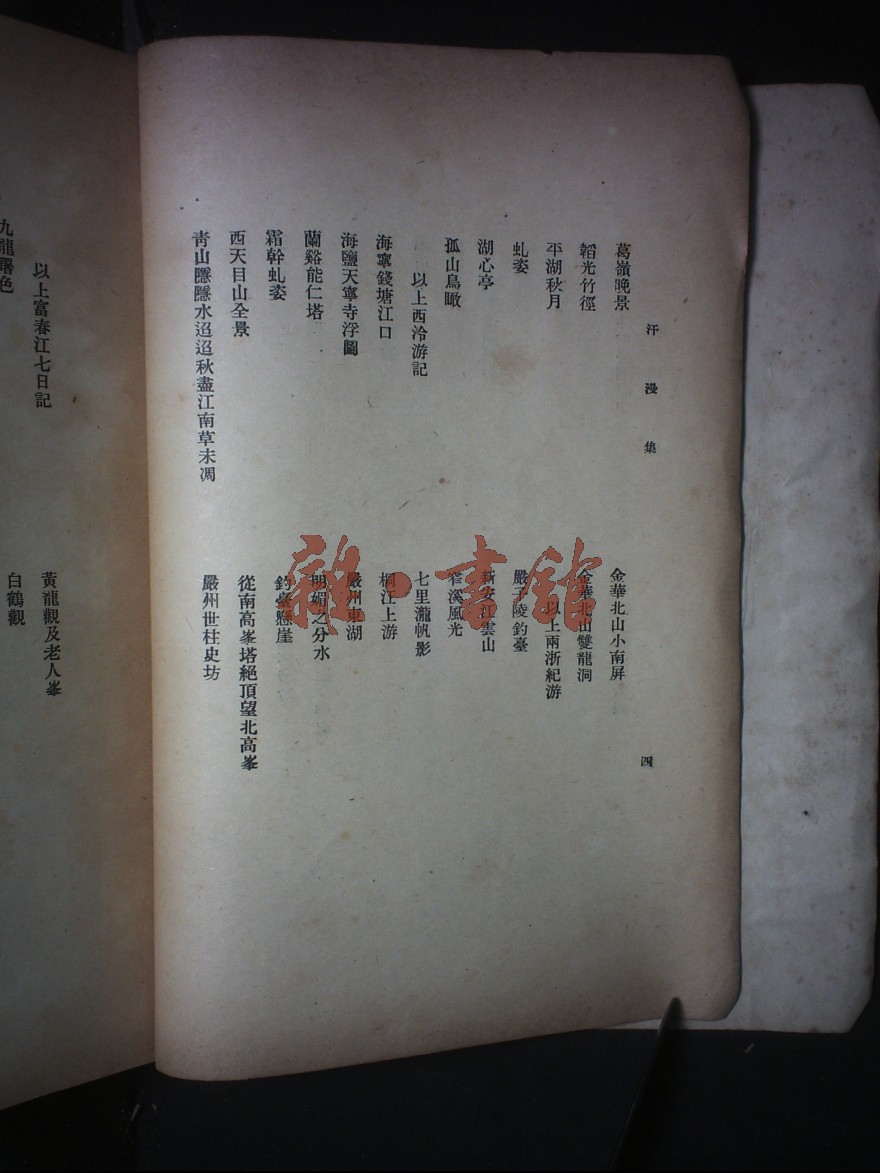 汗漫集
四
葛嶺晚景
韜光竹徑
平湖秋月
虬姿
湖心亭
孤山鳥瞰
以上西泠游記
海寧錢塘江口
海鹽天寧寺浮圖
蘭谿能仁塔
霜幹虬姿
西天目山全景
青山隱隱水迢迢秋盡江南草未凋
金華北山小南屏
金華北山雙龍洞
以上兩浙紀游
嚴子陵釣臺
新安江雲山
窄溪風光
七里瀧帆影
桐江上游
嚴州東湖
明媚之分水
釣臺懸崖
從南高峯塔絕頂望北高峯
嚴州世柱史坊
以上富春江七日記
九龍曙色
黃龍觀及老人峯
白鶴觀
雜·書館